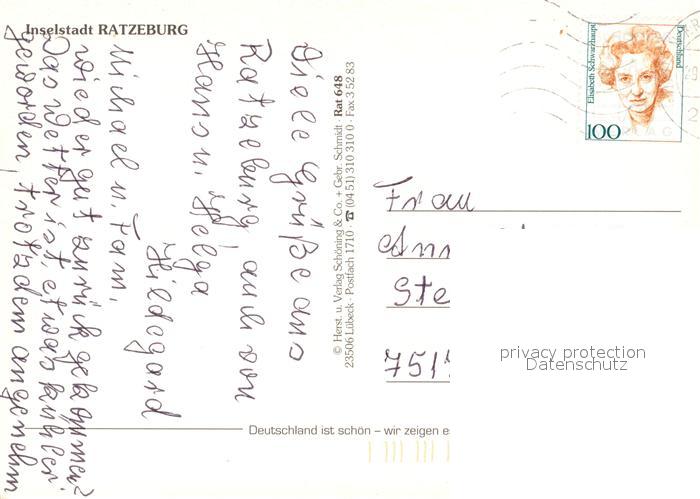 Inselstadt RATZEBURG
Viele Grüße aus
Ratzeburg, auch von
Hans u. Helga
Hildegard
Michael u. Fam.
wieder gut zurück gekommen?
Das Wetter ist etwas kühler
geworden, trotzdem angenehm
© Herst. u. Verlag Schöning & Co. + Gebr. Schmidt · Rat 648
23506 Lübeck · Postfach 1710 · ☎ (04 51) 310 310 0 · Fax 3 52 83
Elisabeth Schwarzhaupt
Deutschland
100
Frau
Ann
Ste
751
privacy protection
Datenschutz
Deutschland ist schön – wir zeigen e